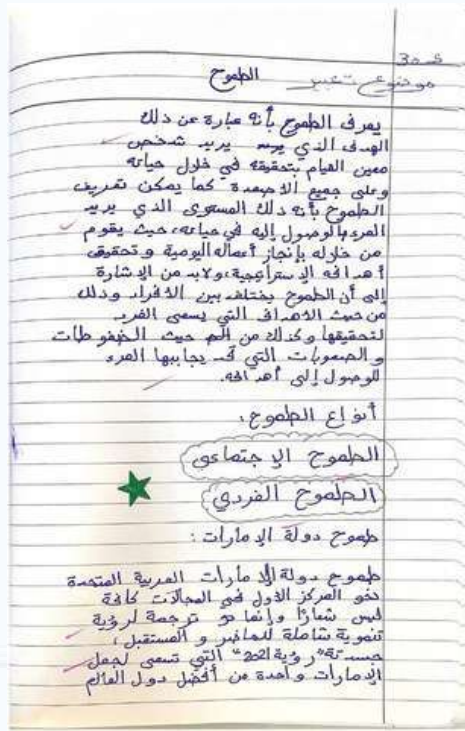 موضوع تعبير
الطموح
يعرف الطموح بأنه عبارة عن ذلك
الهدف الذي يريد شخص
معين القيام بتحقيقه في خلال حياته
وعلى جميع الاصعدة كما يمكن تعريف
الطموح بأنه ذلك المستوى الذي يريد
المرء بالوصول إليه في حياته، حيث يقوم
من خلاله بإنجاز أعماله اليومية و تحقيق
أهدافه الإستراتيجية، ولابد من الإشارة
إلى أن الطموح يختلف بين الافراد وذلك
من حيث الاهداف التي يسعى الفرد
لتحقيقها وكذلك من حيث الضغوطات
و الصعوبات التي قد يجابهها المرء
للوصول إلى أهدافه.
أنواع الطموح:
الطموح الإجتماعي
الطموح الفردي
طموح دولة الإمارات:
طموح دولة الإمارات العربية المتحدة
نحو المركز الأول في المجالات كافة
ليس شعارًا وإنما هو ترجمة لرؤية
تنموية شاملة للحاضر و المستقبل،
"رؤية 2021" التي تسعى لجعل
الإمارات واحدة من أفضل دول العالم